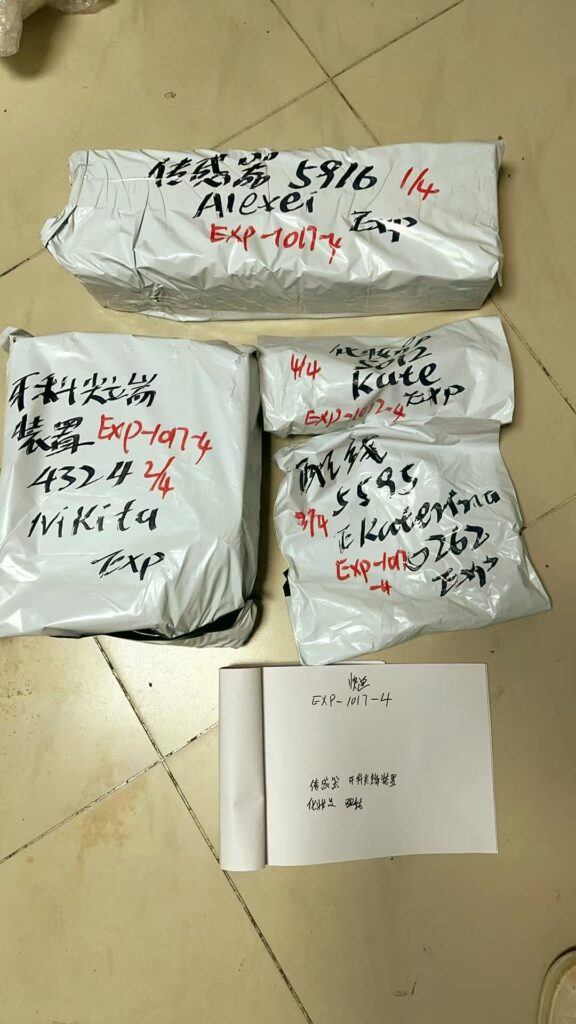 传感器 5916 1/4
Alexei
Exp
EXP-1017-4
牙科尖端
装置 EXP-1017-4
4324 2/4
Nikita
Exp
4/4
Kate
Exp
EXP-1017-4
配线
3/4 5595
Ekaterina
EXP-1017-4
5262
Exp
快运
EXP-1017-4
传感器 牙科尖端装置
化妆品 配线